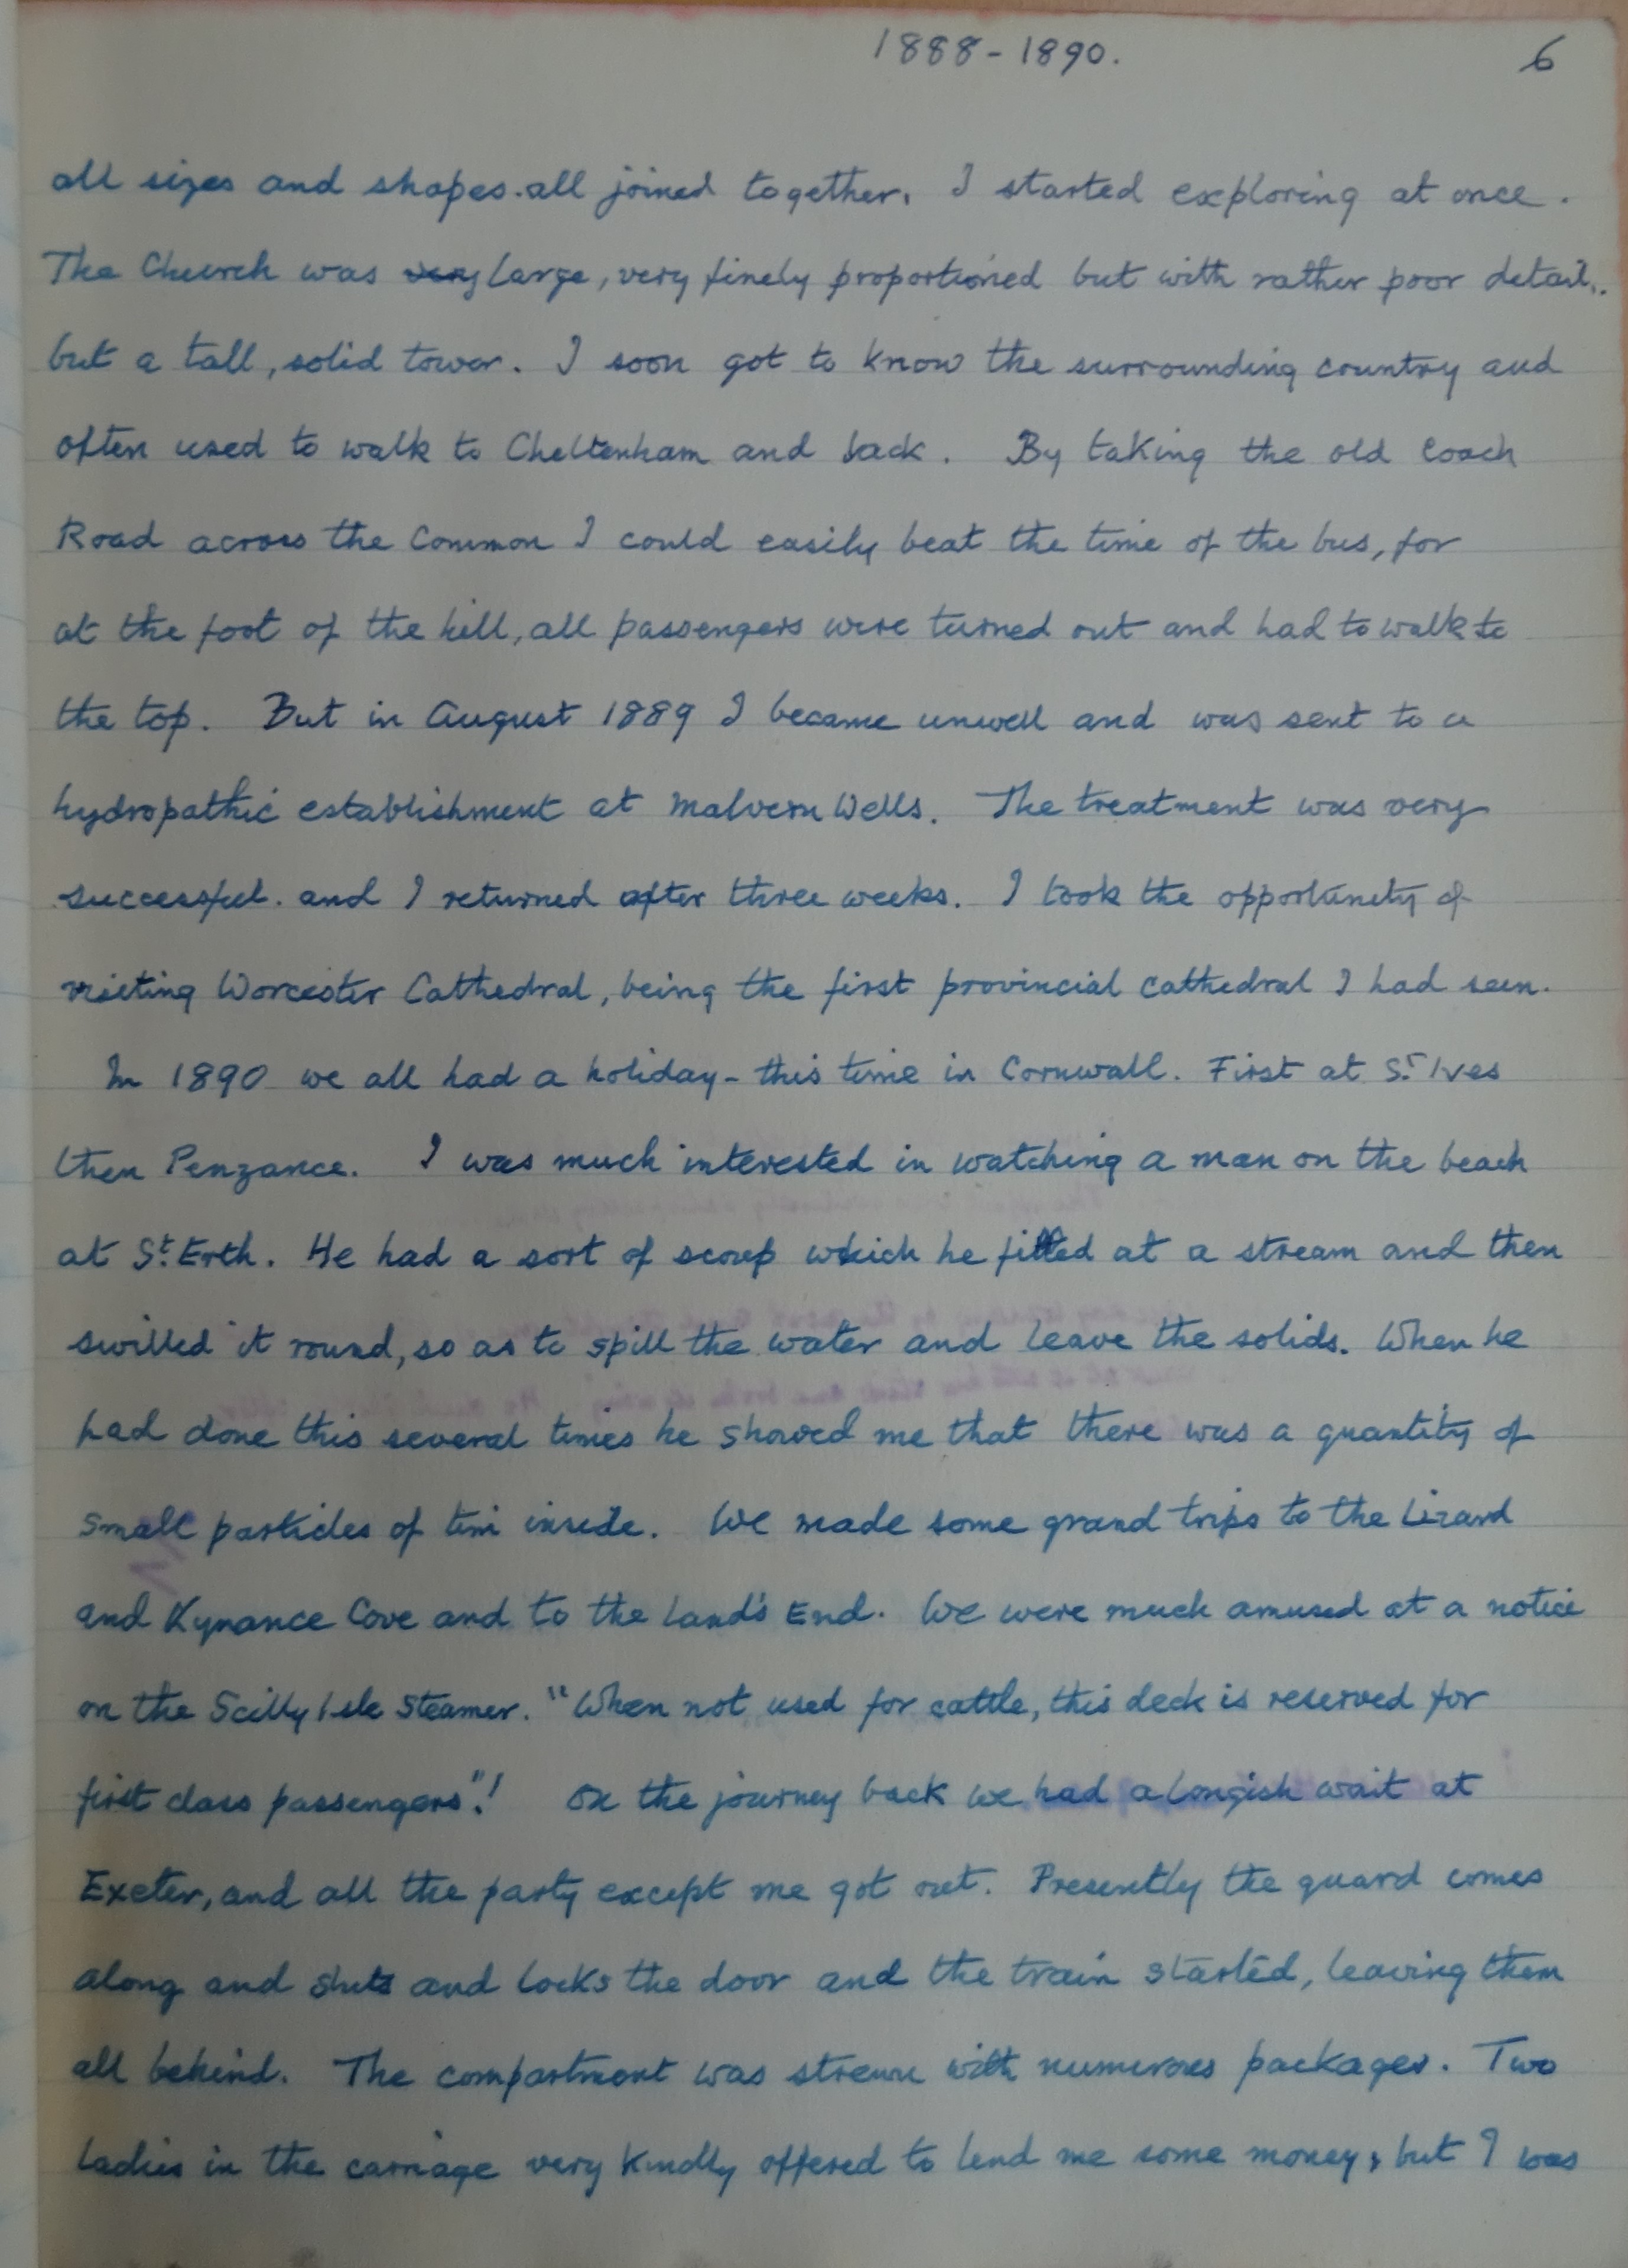 1888 - 1890.
6
all sizes and shapes. all joined together. I started exploring at once.
The Church was very large, very finely proportioned but with rather poor detail,.
but a tall, solid tower. I soon got to know the surrounding country and
often used to walk to Cheltenham and back. By taking the old Coach
Road across the Common I could easily beat the time of the bus, for
at the foot of the hill, all passengers were turned out and had to walk to
the top. But in August 1889 I became unwell and was sent to a
hydropathic establishment at Malvern Wells. The treatment was very
successful. and I returned after three weeks. I took the opportunity of
visiting Worcester Cathedral, being the first provincial Cathedral I had seen.
In 1890 we all had a holiday - this time in Cornwall. First at St Ives
then Penzance. I was much interested in watching a man on the beach
at St. Erth. He had a sort of scoup which he filled at a stream and then
swilled it round, so as to spill the water and leave the solids. When he
had done this several times he showed me that there was a quantity of
small particles of tin inside. We made some grand trips to the Lizard
and Kynance Cove and to the Land's End. We were much amused at a notice
on the Scilly Isle Steamer. "When not used for cattle, this deck is reserved for
first class passengers"! On the journey back we had a longish wait at
Exeter, and all the party except me got out. Presently the guard comes
along and shuts and locks the door and the train started, leaving them
all behind. The compartment was strewn with numerous packages. Two
Ladies in the carriage very kindly offered to lend me some money, but I was